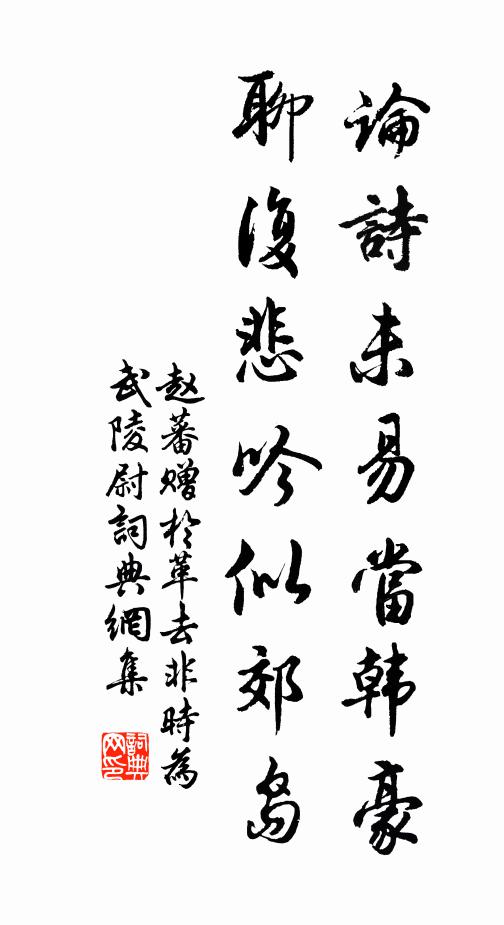 論詩未易當韩豪
聊復悲吟似郊島
赵蕃赠於革去非時為
武陵尉詞典網集
詞典
网印